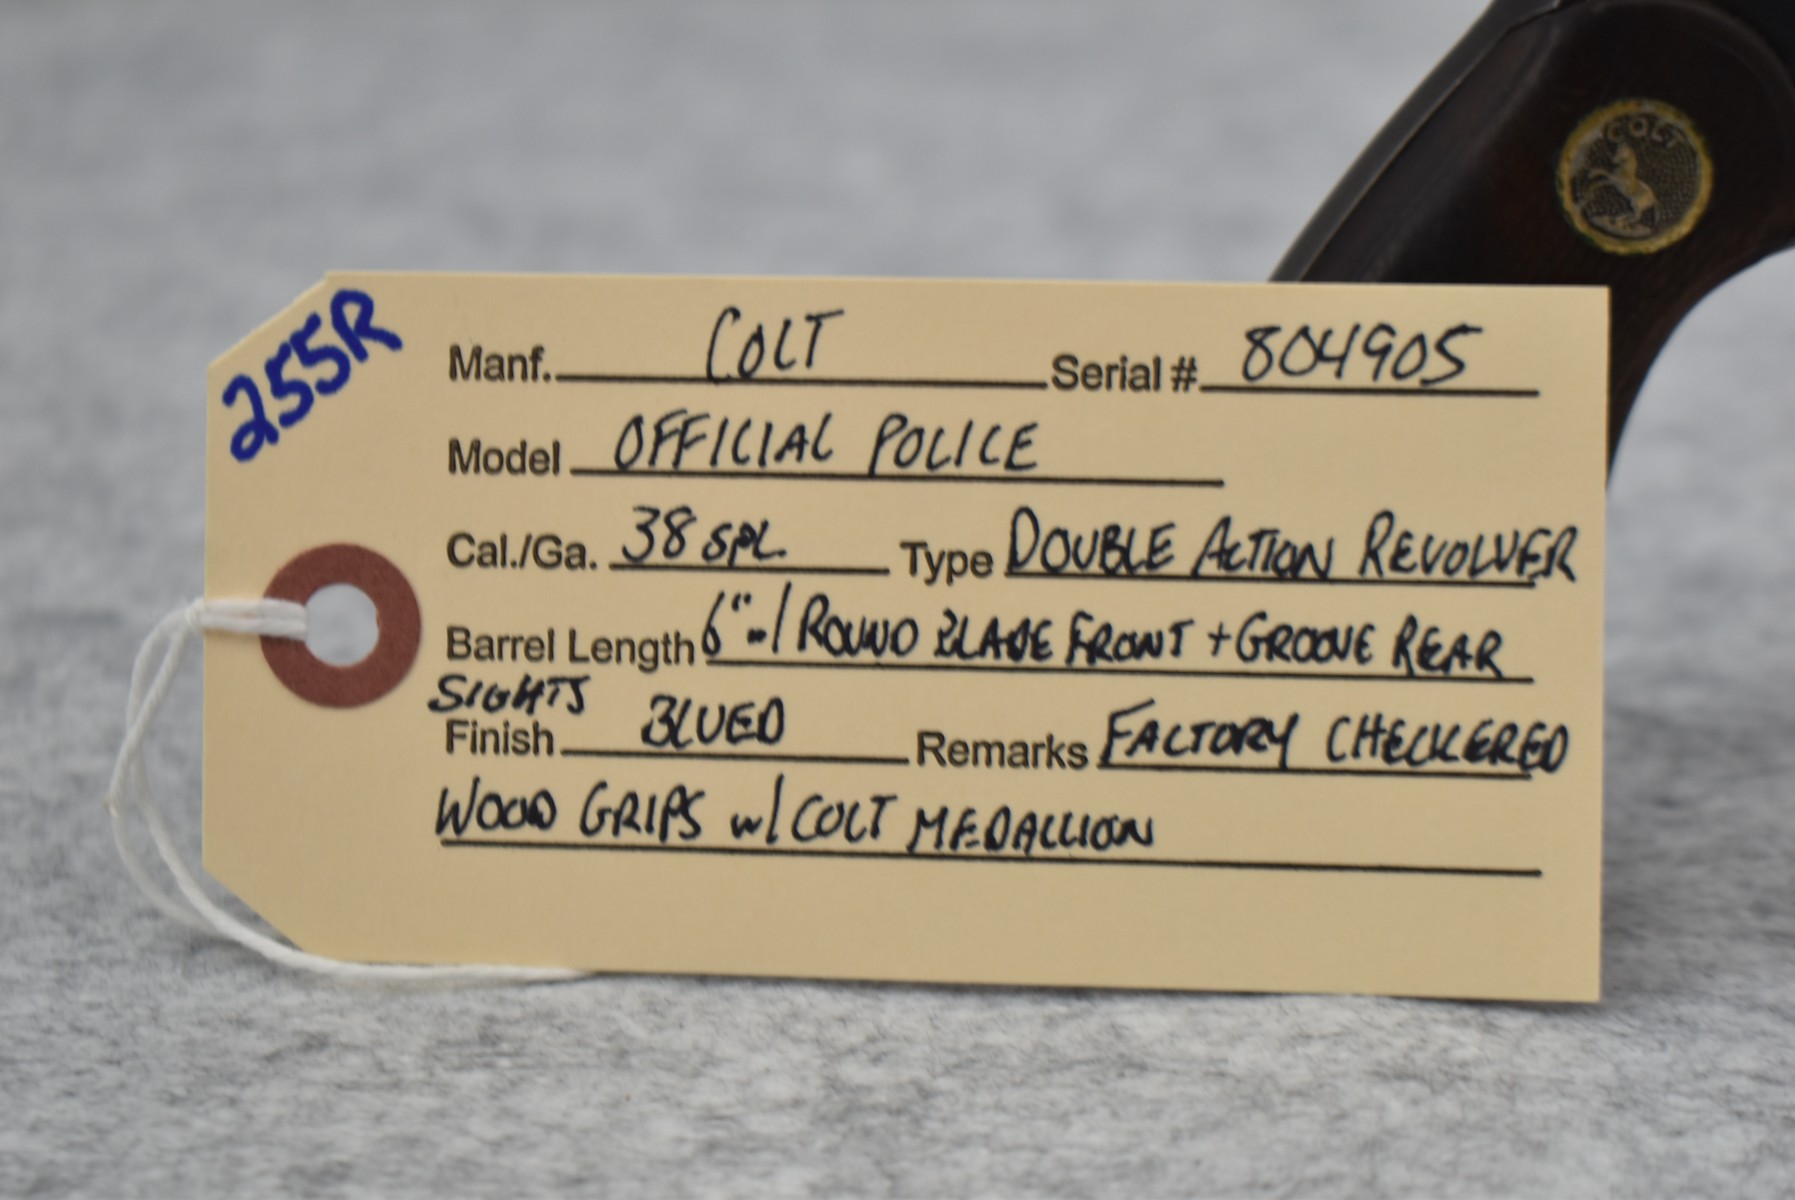 255R
Manf. COLT Serial # 804905
Model OFFICIAL POLICE
Cal./Ga. 38 SPL Type DOUBLE ACTION REVOLVER
Barrel Length 6" w/ ROUND BLADE FRONT + GROOVE REAR
SIGHTS
Finish BLUED Remarks FACTORY CHECKERED
WOOD GRIPS w/ COLT MEDALLION
COLT